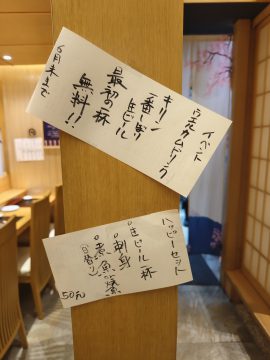 イベント
ウェルカムドリンク
キリン
一番しぼり生ビール
最初の一杯
無料!!
6月末まで
ハッピーセット
生ビール 一杯
刺身
煮魚
(日替り)
50元